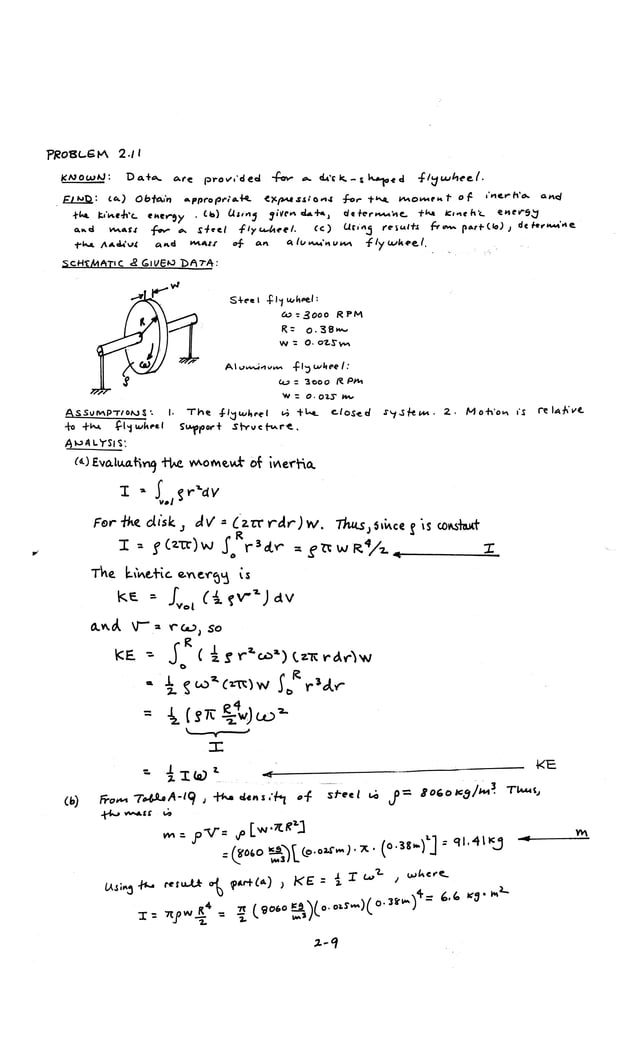 PROBLEM 2.11
KNOWN: Data are provided for a disk-shaped flywheel.
FIND: (a) Obtain appropriate expressions for the moment of inertia and
the kinetic energy. (b) Using given data, determine the kinetic energy
and mass for a steel flywheel. (c) Using results from part(b), determine
the radius and mass of an aluminum flywheel.
SCHEMATIC & GIVEN DATA:
W
R
ω
ρ
Steel flywheel:
ω = 3000 RPM
R = 0.38m
W = 0.025m
Aluminum flywheel:
ω = 3000 RPM
W = 0.025 m
ASSUMPTIONS: 1. The flywheel is the closed system. 2. Motion is relative
to the flywheel support structure.
ANALYSIS:
(a) Evaluating the moment of inertia
I = ∫vol ρr²dV
For the disk, dV = (2πrdr)w. Thus, since ρ is constant
I = ρ(2π)w ∫₀ᴿ r³dr = ρπwR⁴/2 ← I
The kinetic energy is
KE = ∫Vol (½ρV²)dV
and V = rω, so
KE = ∫₀ᴿ (½ρr²ω²)(2πrdr)w
= ½ρω²(2π)w ∫₀ᴿ r³dr
= ½(ρπ R⁴/2 w)ω²
I
= ½Iω² ← KE
(b) From Table A-19, the density of steel is ρ = 8060 kg/m³. Thus,
the mass is
m = ρV = ρ[w·πR²]
= (8060 kg/m³)[(0.025m)·π·(0.38m)²] = 91.41kg ← m
Using the result of part(a), KE = ½Iω², where
I = πρw R⁴/2 = π/2 (8060 kg/m³)(0.025m)(0.38m)⁴ = 6.6 kg·m²
2-9